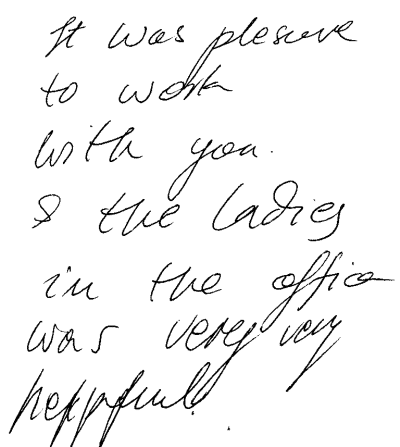 It was plesure
to work
with you.
& the ladies
in the office
was very very
heppfull.